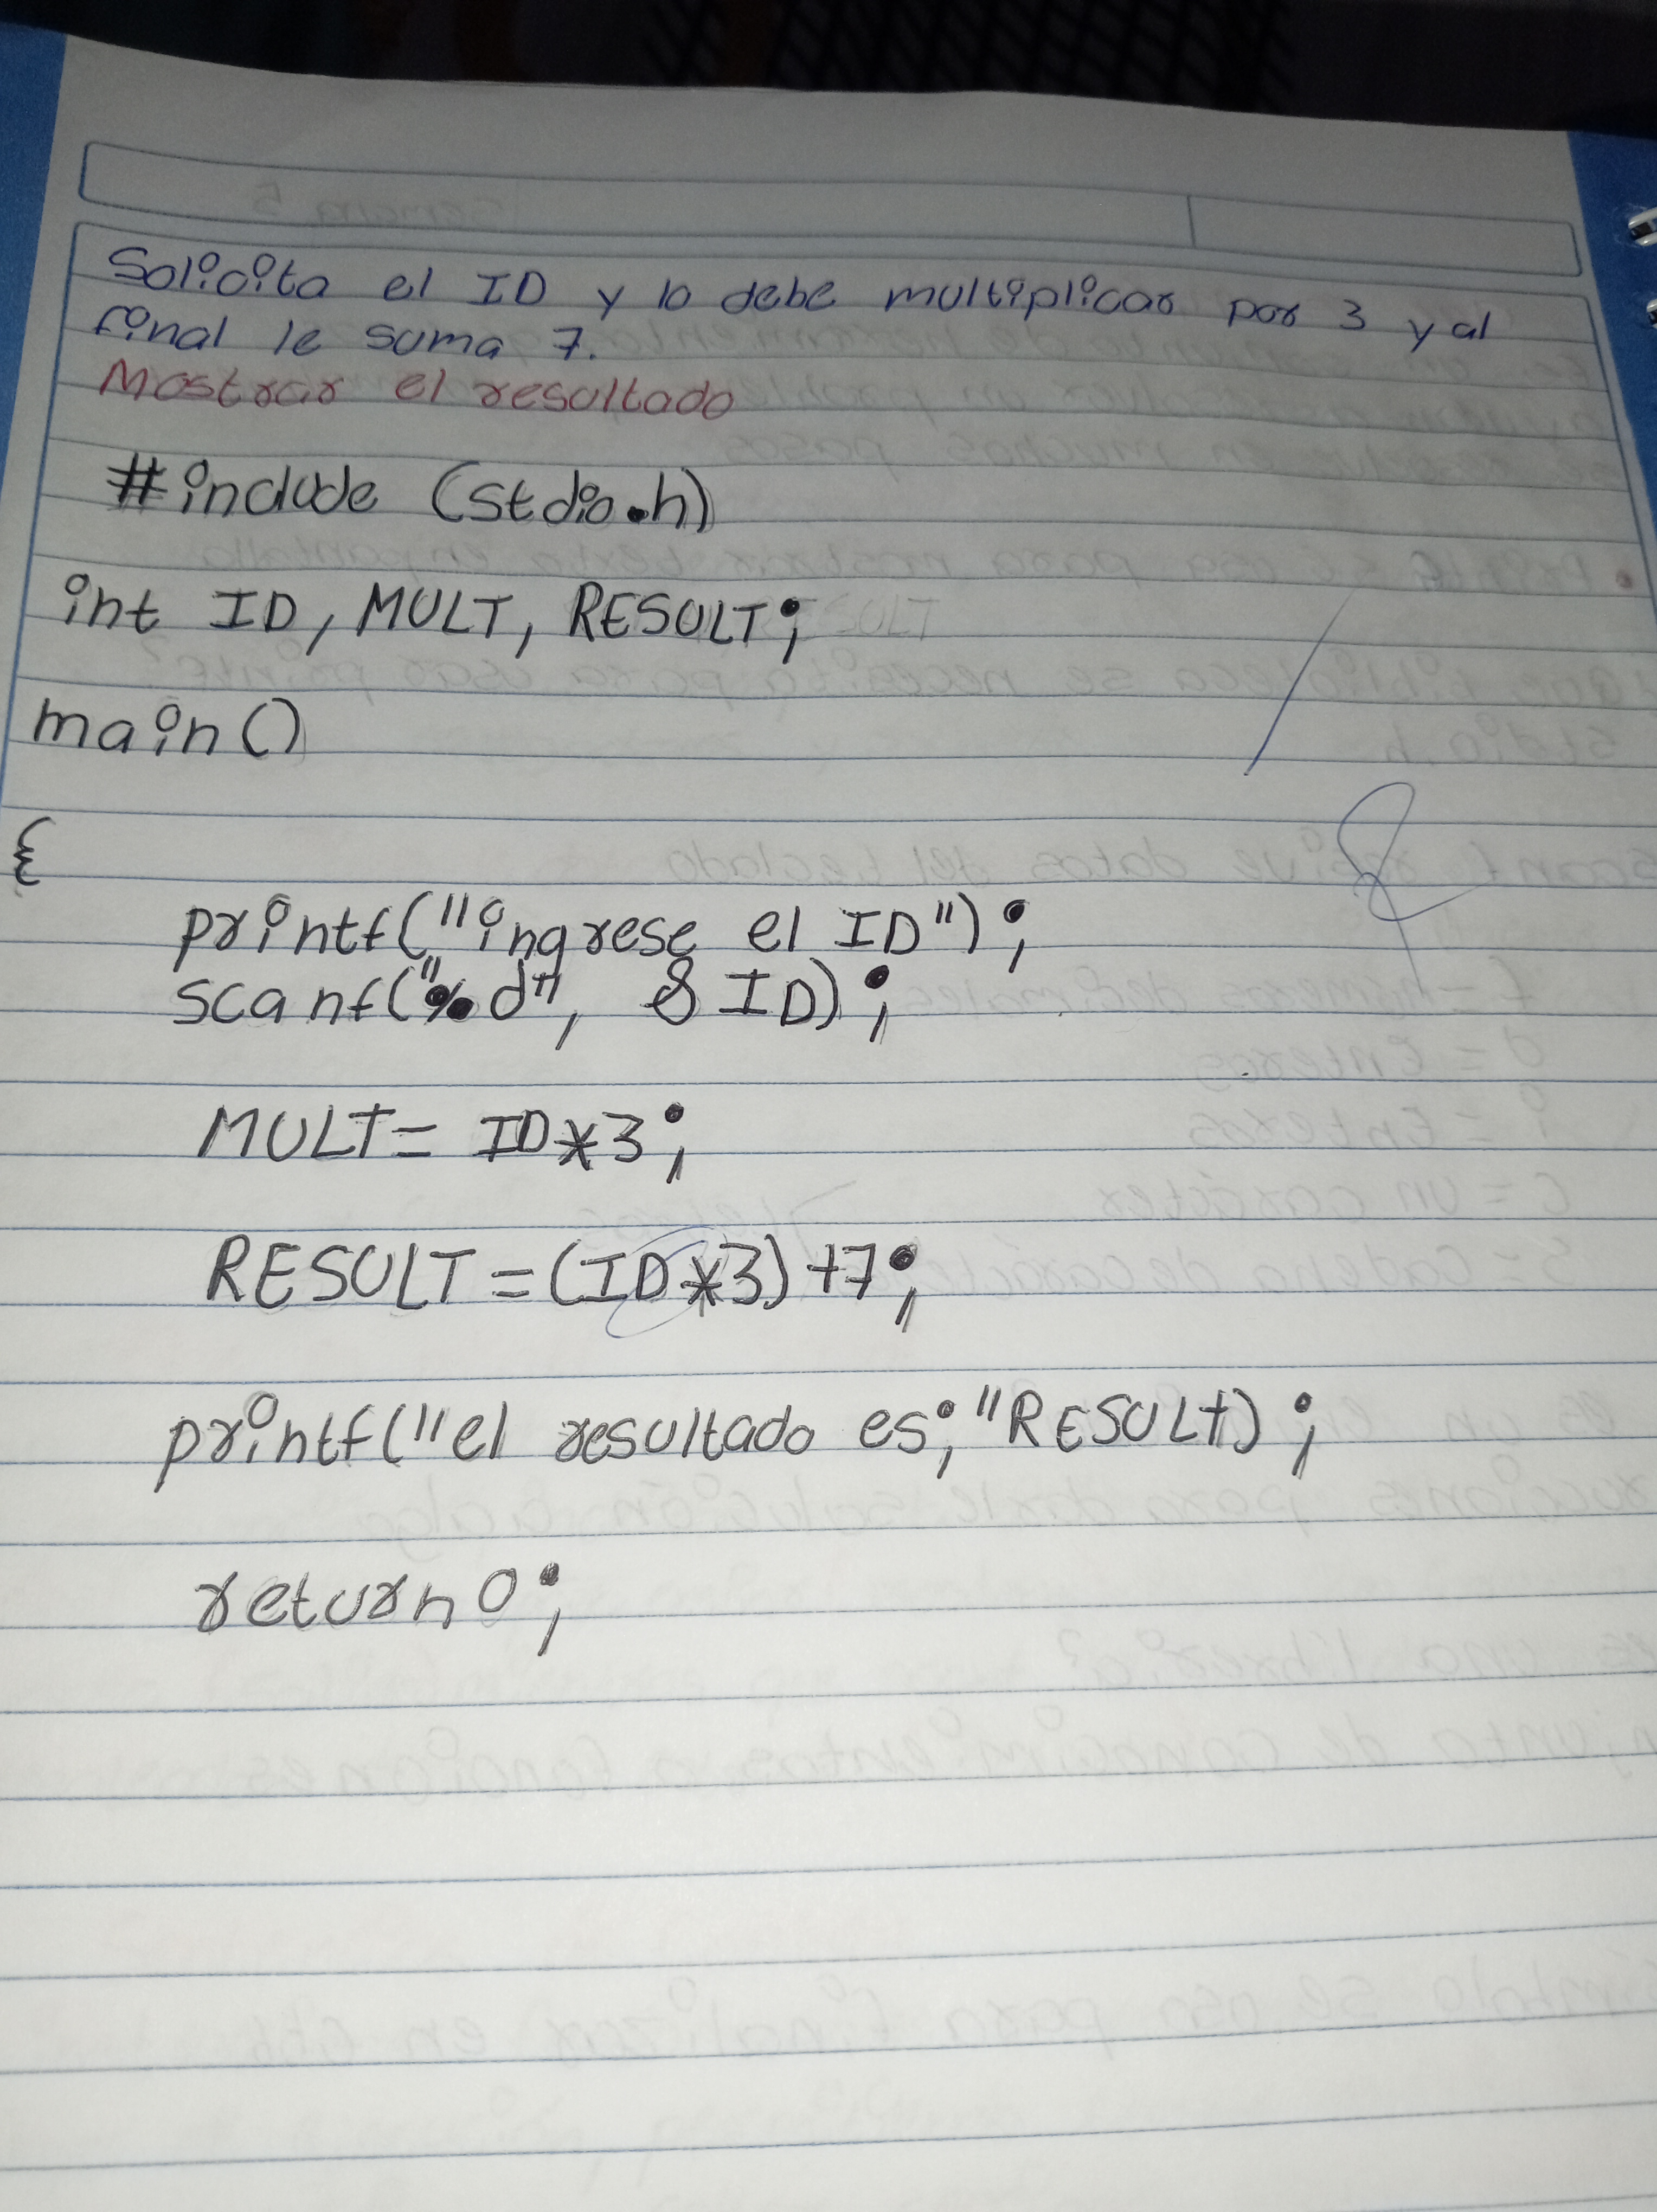 Solicita el ID y lo debe multiplicar por 3 y al
final le suma 7.
Mostrar el resultado
#include (stdio.h)
int ID, MULT, RESULT;
main()
{
printf("ingrese el ID");
scanf("%d", & ID);
MULT= ID*3;
RESULT=(ID*3)+7;
printf("el resultado es;"RESULt);
return 0;